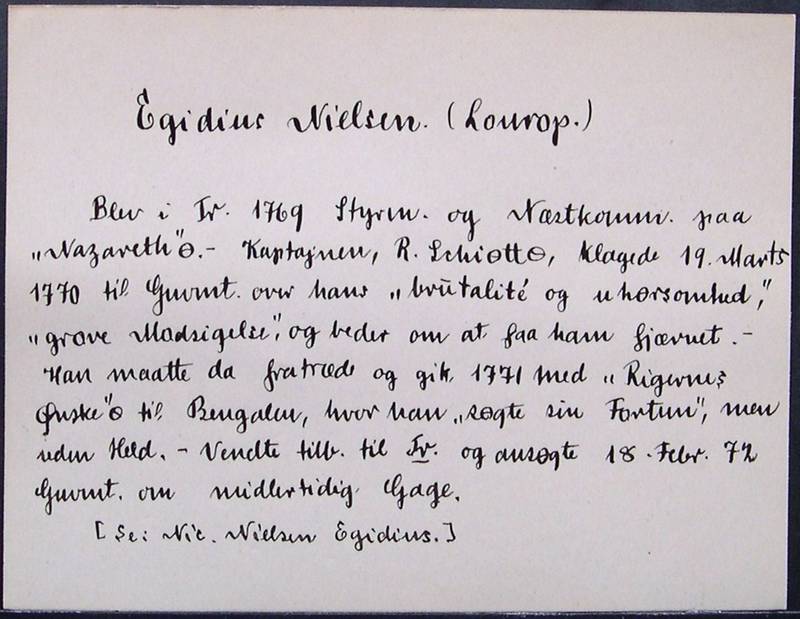 Egidius Nielsen. (Lourop.)
Blev i Tr. 1769 Styrm. og Næstkomm. paa
„Nazareth"⊖.- Kaptajnen, R. Schiøtt⊖, klagede 19. Marts
1770 til Guvmt. over hans „brutalité og uhørsomhed,"
„grove Modsigelse", og beder om at faa ham fjærnet. -
Han maatte da fratræde og gik 1771 med „Rigernes
Ønske"⊖ til Bengalen, hvor han „søgte sin Fortun", men
uden Held. - Vendte tilb. til Tr. og ansøgte 18. Febr. 72
Guvmt. om midlertidig Gage.
[Se: Nic. Nielsen Egidius.]